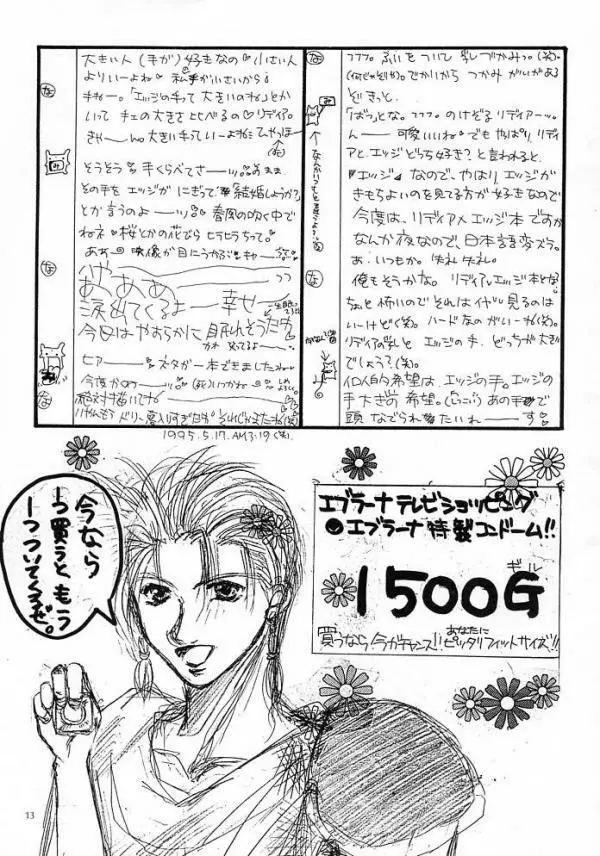 ファファ。ふいをついて乳づかみっ。(笑)。
(何じゃそりゃ)。でかいから つかみ がいがある
ぞきっと。
「ばっ」とな。ファファ。のけぞるリディアーッ。
んーー 可愛いいね。でもやっぱり、リディ
アと、エッジどっち好き?と言われると、
『エッジ』なので、やはり、エッジが
きもちよいのを見てる方が好きなので
今度は、リディア×エッジ本ですか
なんか夜なので、日本語変ズラ。
あ、いつもか。失礼失礼。
俺もそうかな。リディア×エッジ本とな
いーけど(笑)。ハードなのがいーね(笑)。
リディアの乳と エッジの手、どっちが大き
でしょう?(笑)。
個人的希望は、エッジの手。エッジの
手大きめ 希望。あの手で
頭 なでられたいれーーす
大きい人(手が)好きなの 小さい人
よりいーよね 私手が小さいから
ねー。「エッジの手って大きいのね」とか
いって手の大きさ比べるの リディア。
きゃー 大きい手っていーよね
そうそう手くらべてさー そのまま
その手を エッジが にぎって「結婚しようか?」
とか言うのよーー 春風の吹く中で
ね 桜とかの花びら ヒラヒラちって。
ああ 映像が目にうかぶ
ああああ
涙出てくるよー 幸せー
今日はやすらかに 眠れそうだわ
ネタが一本できましたわ
今度かめー
絶対描いてな
1995.5.17.AM3:19(笑)
エブラーナテレビショッピング
●エブラーナ特製コンドーム!!
1500G
ギル
買うなら今がチャンス!!あなたにピッタリフィットサイズ!!
今なら
一つ買うともう
一つついてくるぜ。
13